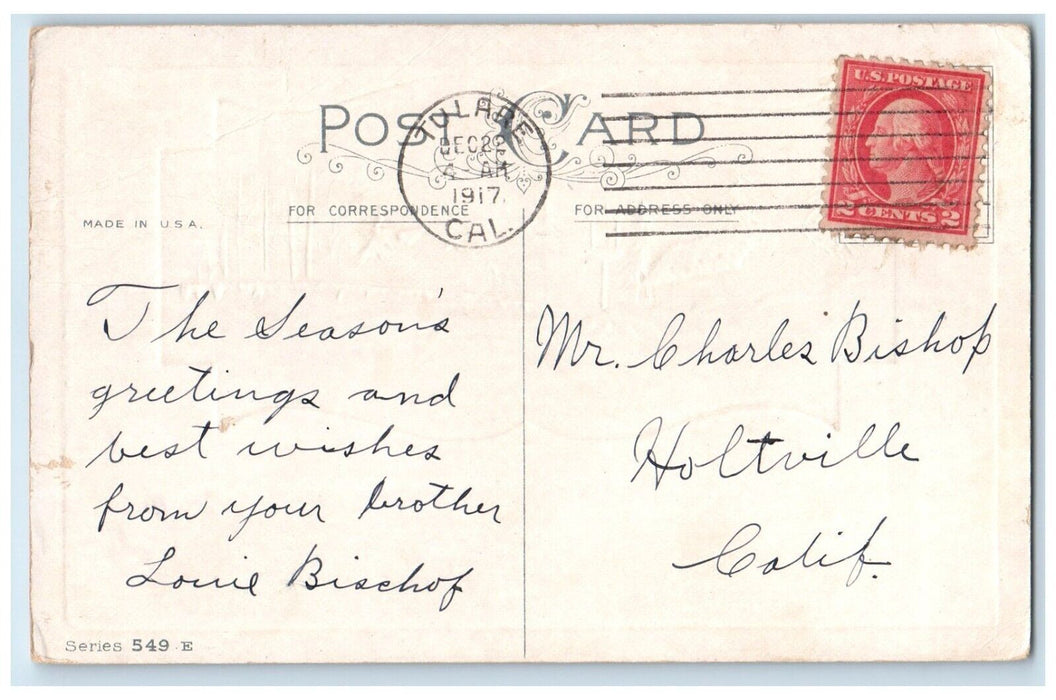 POST CARD
TULARE
DEC 22
4 AM
1917.
CAL.
U.S. POSTAGE
2 CENTS 2
FOR CORRESPONDENCE
FOR ADDRESS ONLY
MADE IN U.S.A.
The Season's
greetings and
best wishes
from your brother
Louie Bischof
Mr. Charles Bishop
Holtville
Calif.
Series 549 E